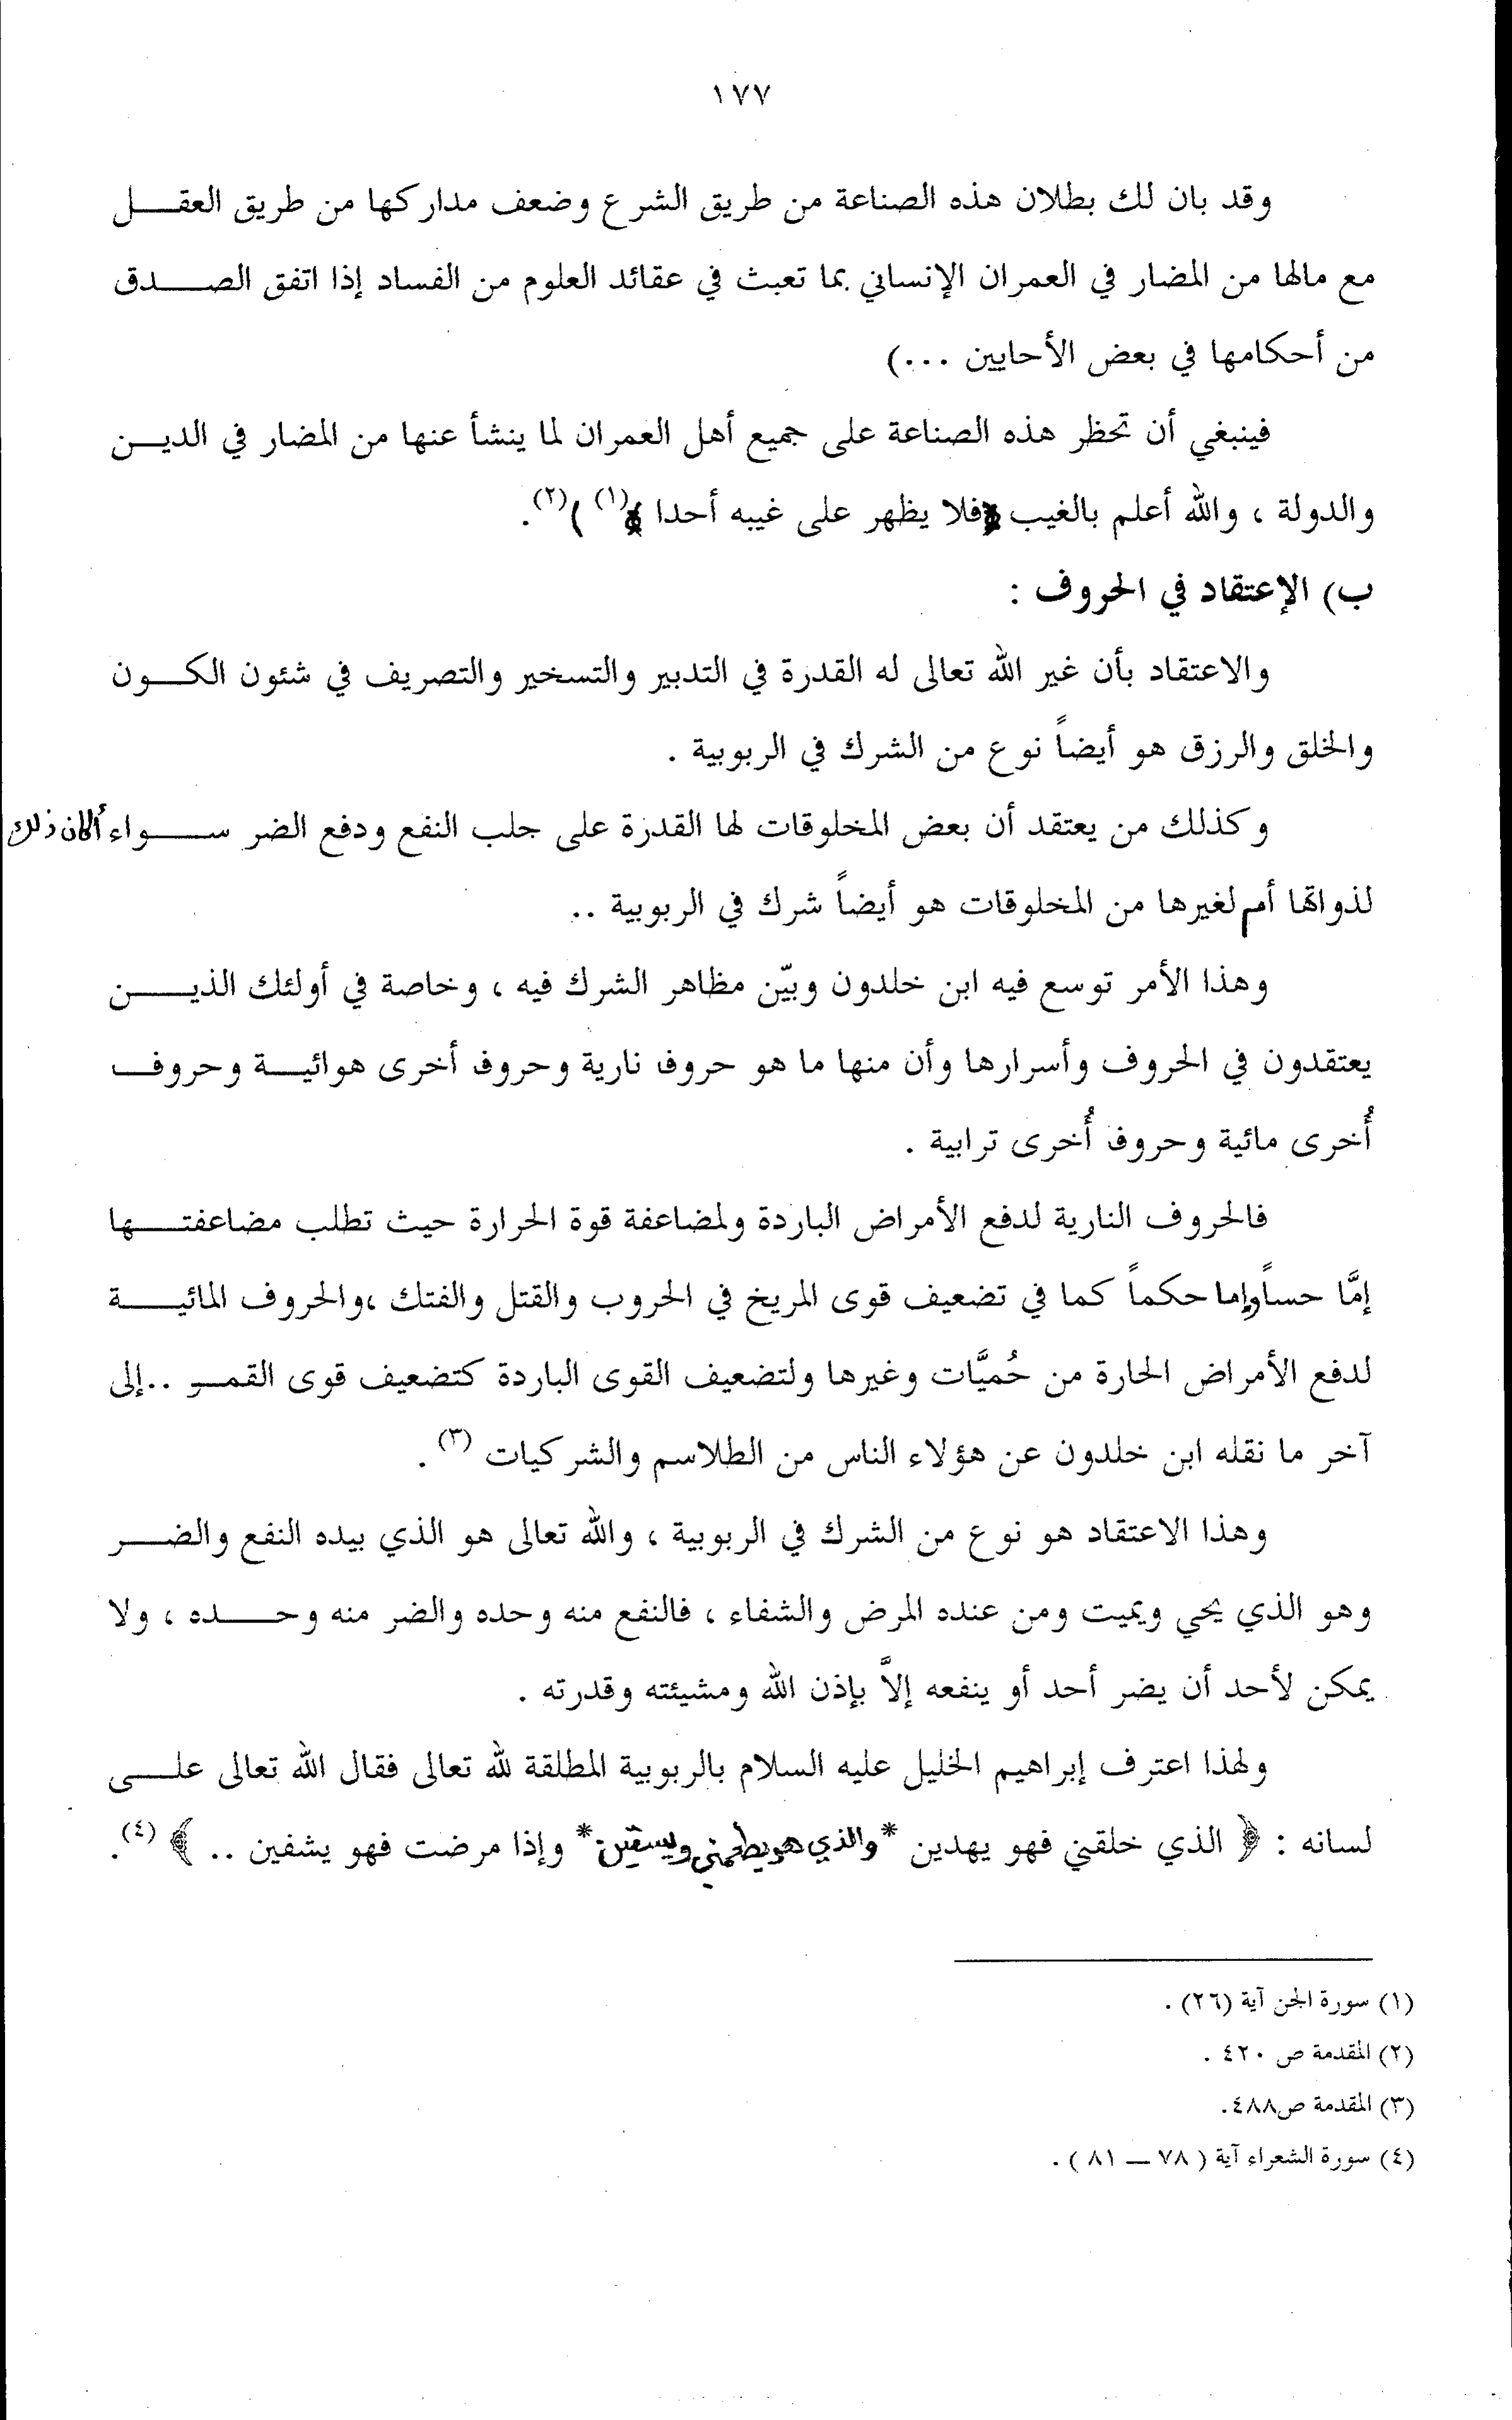 ١٧٧
وقد بان لك بطلان هذه الصناعة من طريق الشرع وضعف مداركها من طريق العقـــل
مع مالها من المضار في العمران الإنساني بما تعبث في عقائد العلوم من الفساد إذا اتفق الصـــدق
من أحكامها في بعض الأحايين ...)
فينبغي أن تحظر هذه الصناعة على جميع أهل العمران لما ينشأ عنها من المضار في الديـــن
والدولة ، والله أعلم بالغيب ﴿فلا يظهر على غيبه أحدا ﴾(١) )(٢).
ب) الإعتقاد في الحروف :
والاعتقاد بأن غير الله تعالى له القدرة في التدبير والتسخير والتصريف في شئون الكـــون
والخلق والرزق هو أيضاً نوع من الشرك في الربوبية .
وكذلك من يعتقد أن بعض المخلوقات لها القدرة على جلب النفع ودفع الضر ســـواء أكان ذلك
لذواتها أم لغيرها من المخلوقات هو أيضاً شرك في الربوبية ..
وهذا الأمر توسع فيه ابن خلدون وبيّن مظاهر الشرك فيه ، وخاصة في أولئك الذيـــن
يعتقدون في الحروف وأسرارها وأن منها ما هو حروف نارية وحروف أخرى هوائيـــة وحروف
أُخرى مائية وحروف أُخرى ترابية .
فالحروف النارية لدفع الأمراض الباردة ولمضاعفة قوة الحرارة حيث تطلب مضاعفتـــها
إمَّا حساً وإما حكماً كما في تضعيف قوى المريخ في الحروب والقتل والفتك ،والحروف المائيـــة
لدفع الأمراض الحارة من حُميَّات وغيرها ولتضعيف القوى الباردة كتضعيف قوى القمـــر ..إلى
آخر ما نقله ابن خلدون عن هؤلاء الناس من الطلاسم والشركيات (٣) .
وهذا الاعتقاد هو نوع من الشرك في الربوبية ، والله تعالى هو الذي بيده النفع والضـــر
وهو الذي يحي ويميت ومن عنده المرض والشفاء ، فالنفع منه وحده والضر منه وحـــده ، ولا
يمكن لأحد أن يضر أحد أو ينفعه إلاَّ بإذن الله ومشيئته وقدرته .
ولهذا اعترف إبراهيم الخليل عليه السلام بالربوبية المطلقة لله تعالى فقال الله تعالى علـــى
لسانه : ﴿ الذي خلقني فهو يهدين * والذي هو يطعمني ويسقين * وإذا مرضت فهو يشفين .. ﴾ (٤).
(١) سورة الجن آية (٢٦) .
(٢) المقدمة ص ٤٢٠ .
(٣) المقدمة ص٤٨٨.
(٤) سورة الشعراء آية ( ٧٨ — ٨١ ) .